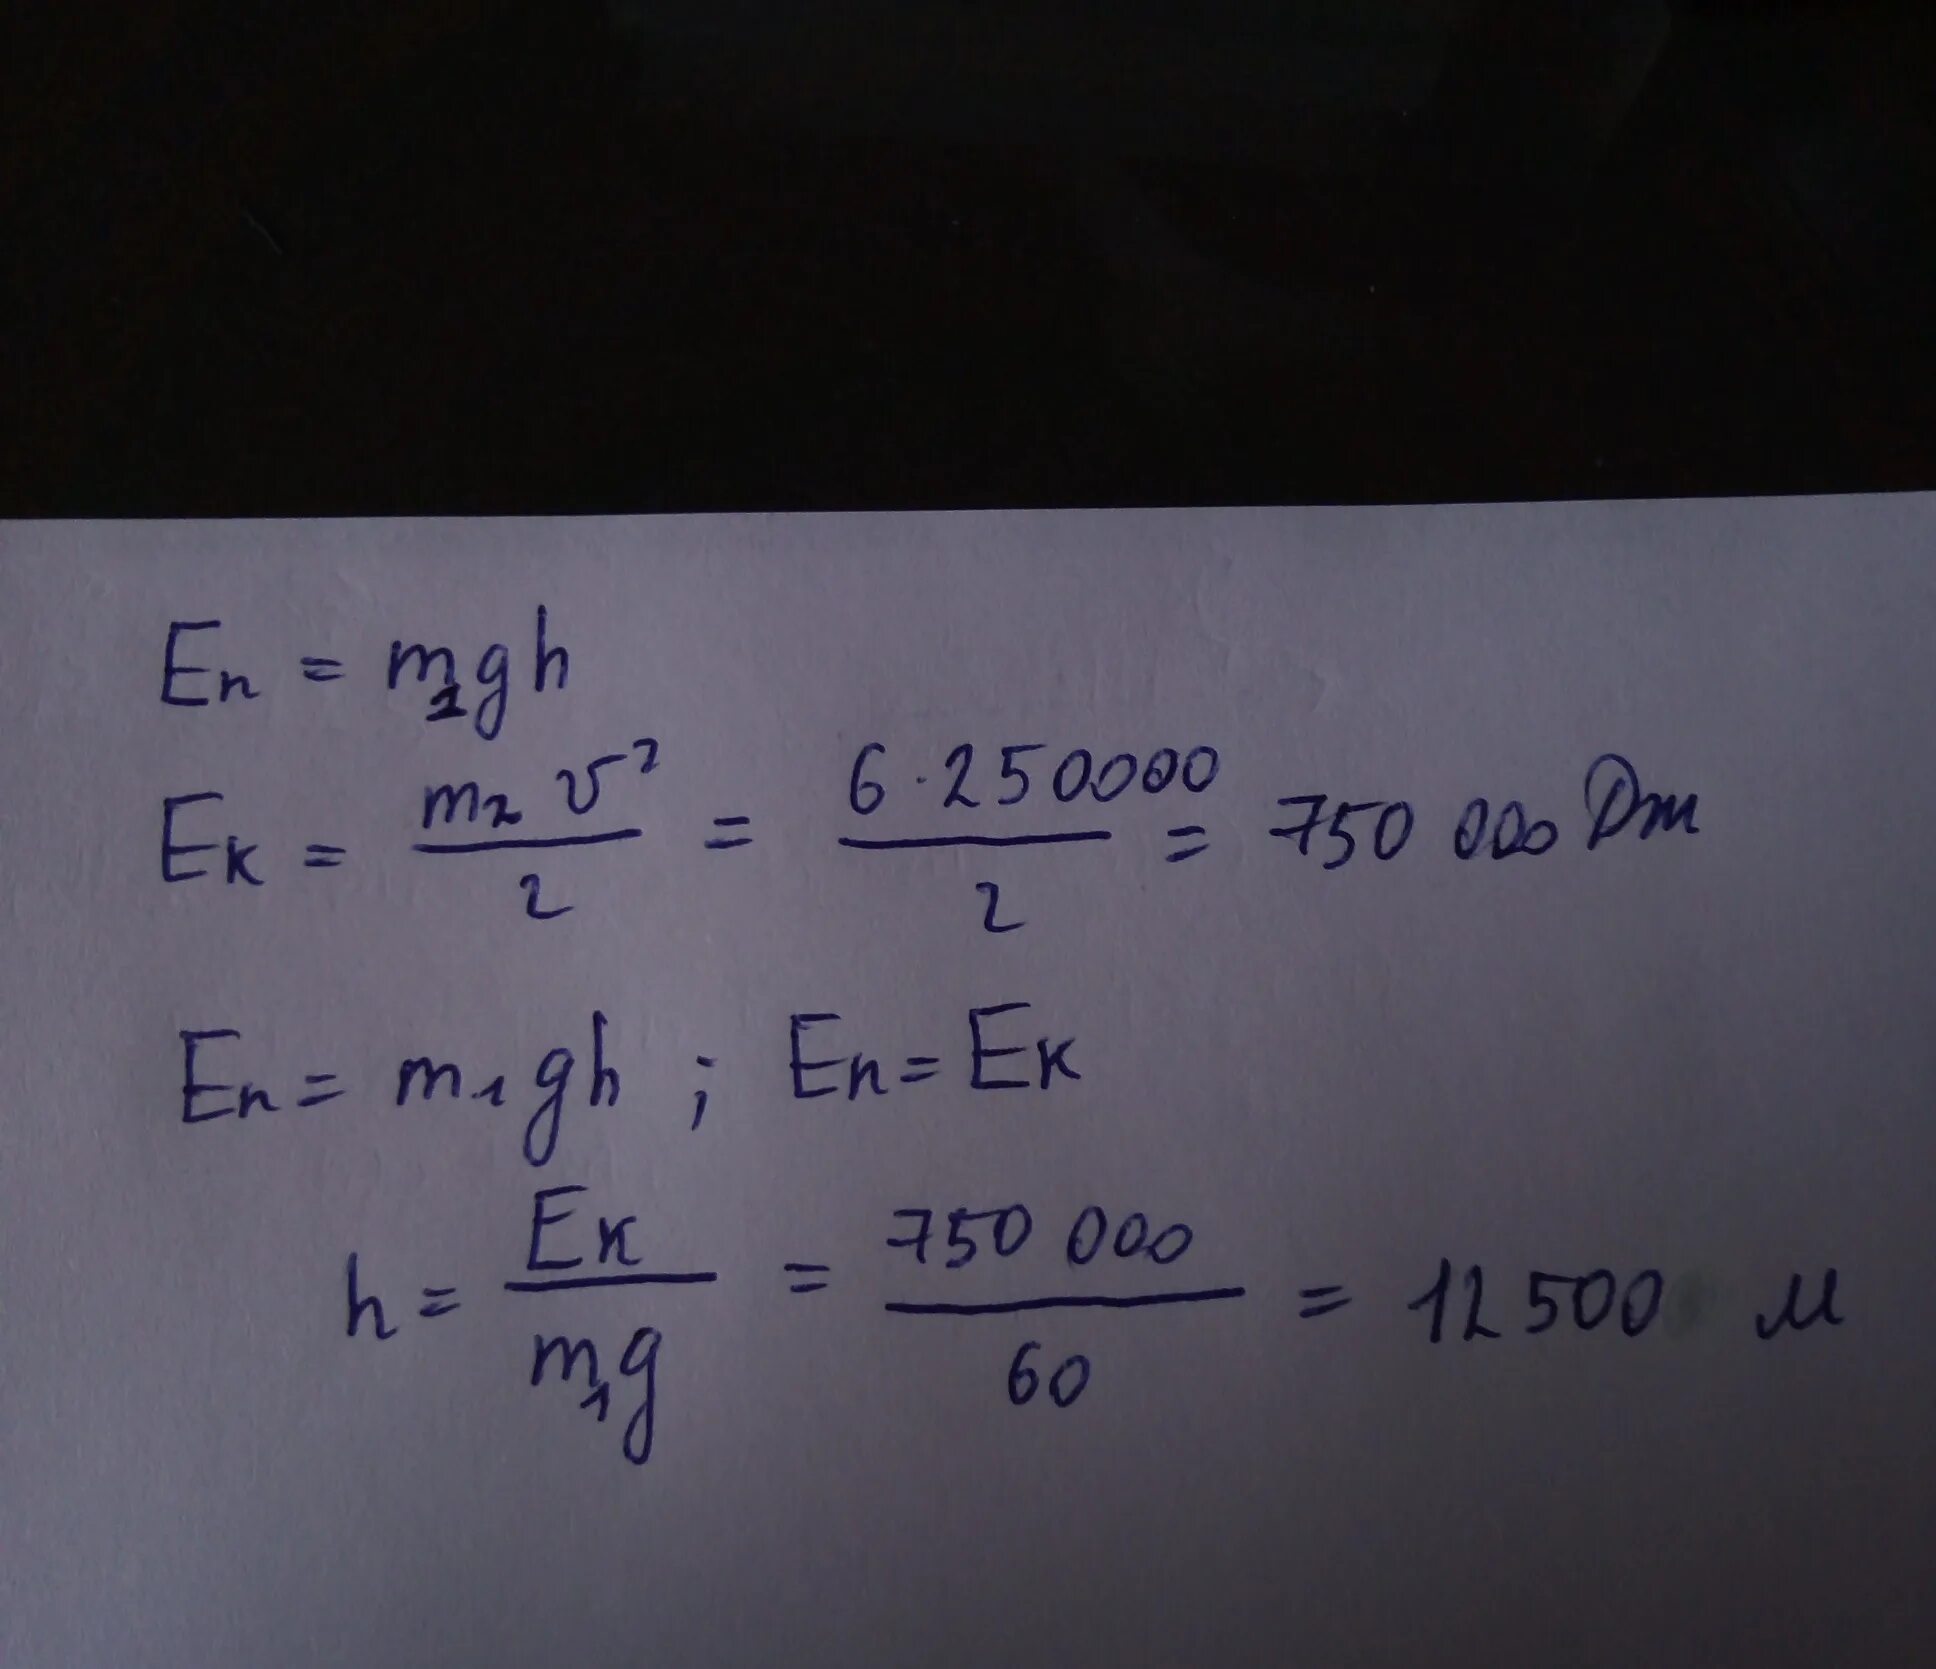 Eп = m₁gh
Eк = m₂ v² / 2 = 6 · 250000 / 2 = 750 000 Дж
Eп = m₁gh ; Eп = Eк
h = Eк / m₁g = 750 000 / 60 = 12500 м